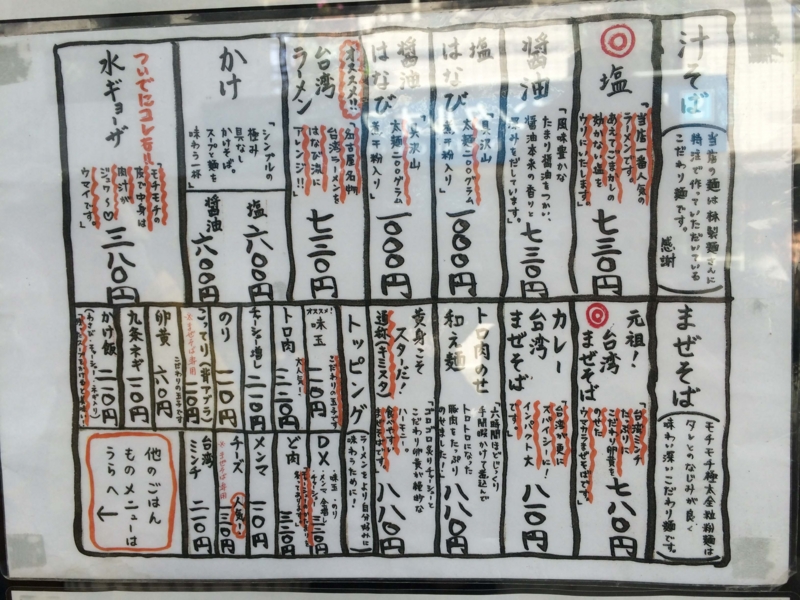 汁そば
当店の麺は林製麺さんに
特注で作っていただいている
こだわり麺です。
感謝
◎塩
「当店一番人気の
ラーメンです。
あえてごまかしの
効かない塩を
ウリにいたします」
七三〇円
醤油
「風味豊かな
たまり醤油をつかい、
醤油本来の香りと
深みをだしています。」
七三〇円
塩
はなび
「具沢山
太麺二〇〇グラム
煮干粉入り」
一〇〇〇円
醤油
はなび
「具沢山
太麺二〇〇グラム
煮干粉入り」
一〇〇〇円
オススメ!!
台湾
ラーメン
「名古屋名物
台湾ラーメンを
はなび流に
アレンジ!!」
七三〇円
かけ
「シンプルの
極み
具なし
かけそば。
スープと麺を
味わう一杯」
塩 六〇〇円
醤油 六〇〇円
ついでにコレモ!!
水ギョーザ
「モチモチの
皮で中身は
肉汁が
ジュワ〜♡
ウマイです。」
三八〇円
まぜそば
モチモチ極太全粒粉麺は
タレとのなじみが良く
味わい深いこだわり麺です。
元祖!
◎台湾
まぜそば
「台湾ミンチ
たっぷりに
こだわり卵黄を
のせた
ウマカラまぜそばです」
七八〇円
カレー
台湾
まぜそば
「台湾が更に
スパイシーに!
インパクト大
です。」
八八〇円
トロ肉のせ
和え麺
「六時間ほどじっくり
手間暇かけて煮込んで
トロトロになった
豚肉をたっぷり
のせました!」
八八〇円
黄身こそ
スターだ!
通称(キミスタ)
「ゴロゴロ炙りチャーシューと
こだわり卵黄が絶妙な
ハーモニー
まぜそばです」
八八〇円
トッピング
ラーメンをより自分好みに
味わうために!
オススメ!
味玉
こだわりの玉子です
一〇〇円
トロ肉
大人気!
チャーシュー増し
のり
一〇〇円
こってり(背アブラ)
※まぜそば専用
卵黄
こだわりの玉子です
六〇円
九条ネギ
一〇〇円
かけ飯
DX
・味玉・のり
・メンマ全増し
・チャーシュー
ど肉
メンマ
チーズ
※まぜそば専用
人気!
台湾
ミンチ
他のごはん
ものメニューは
うらへ←